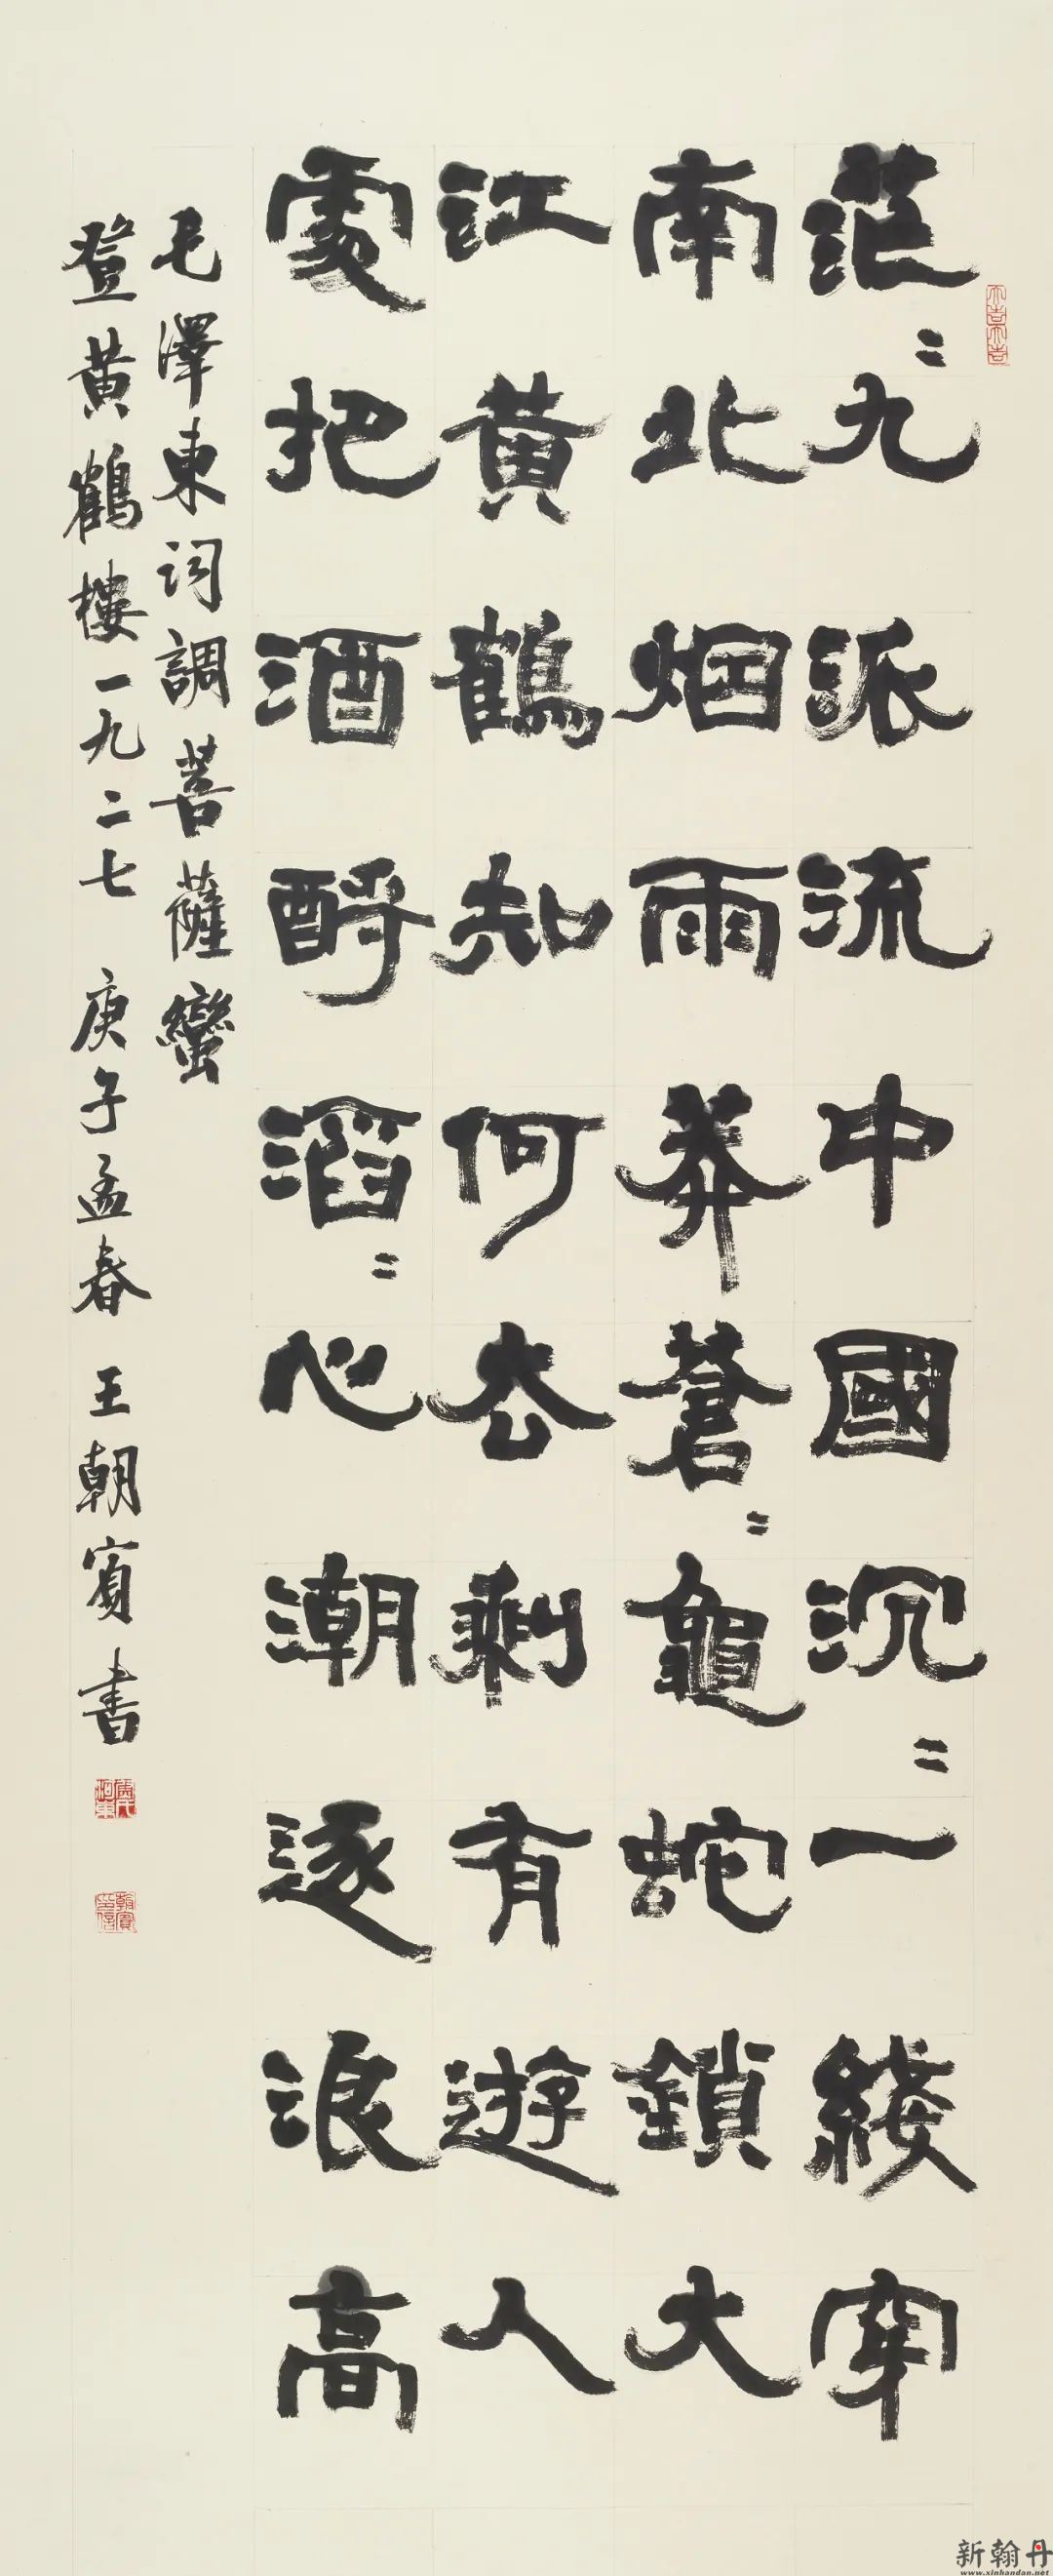 茫〻九派流中國沉〻一綫穿
南北烟雨莽蒼〻龜蛇鎖大
江黄鶴知何去剩有遊人
處把酒酹滔〻心潮逐浪高
毛澤東词調菩薩蠻
登黄鶴樓一九二七 庚子孟春 王朝賓書
大吉大吉
新翰丹
www.xinhandan.net